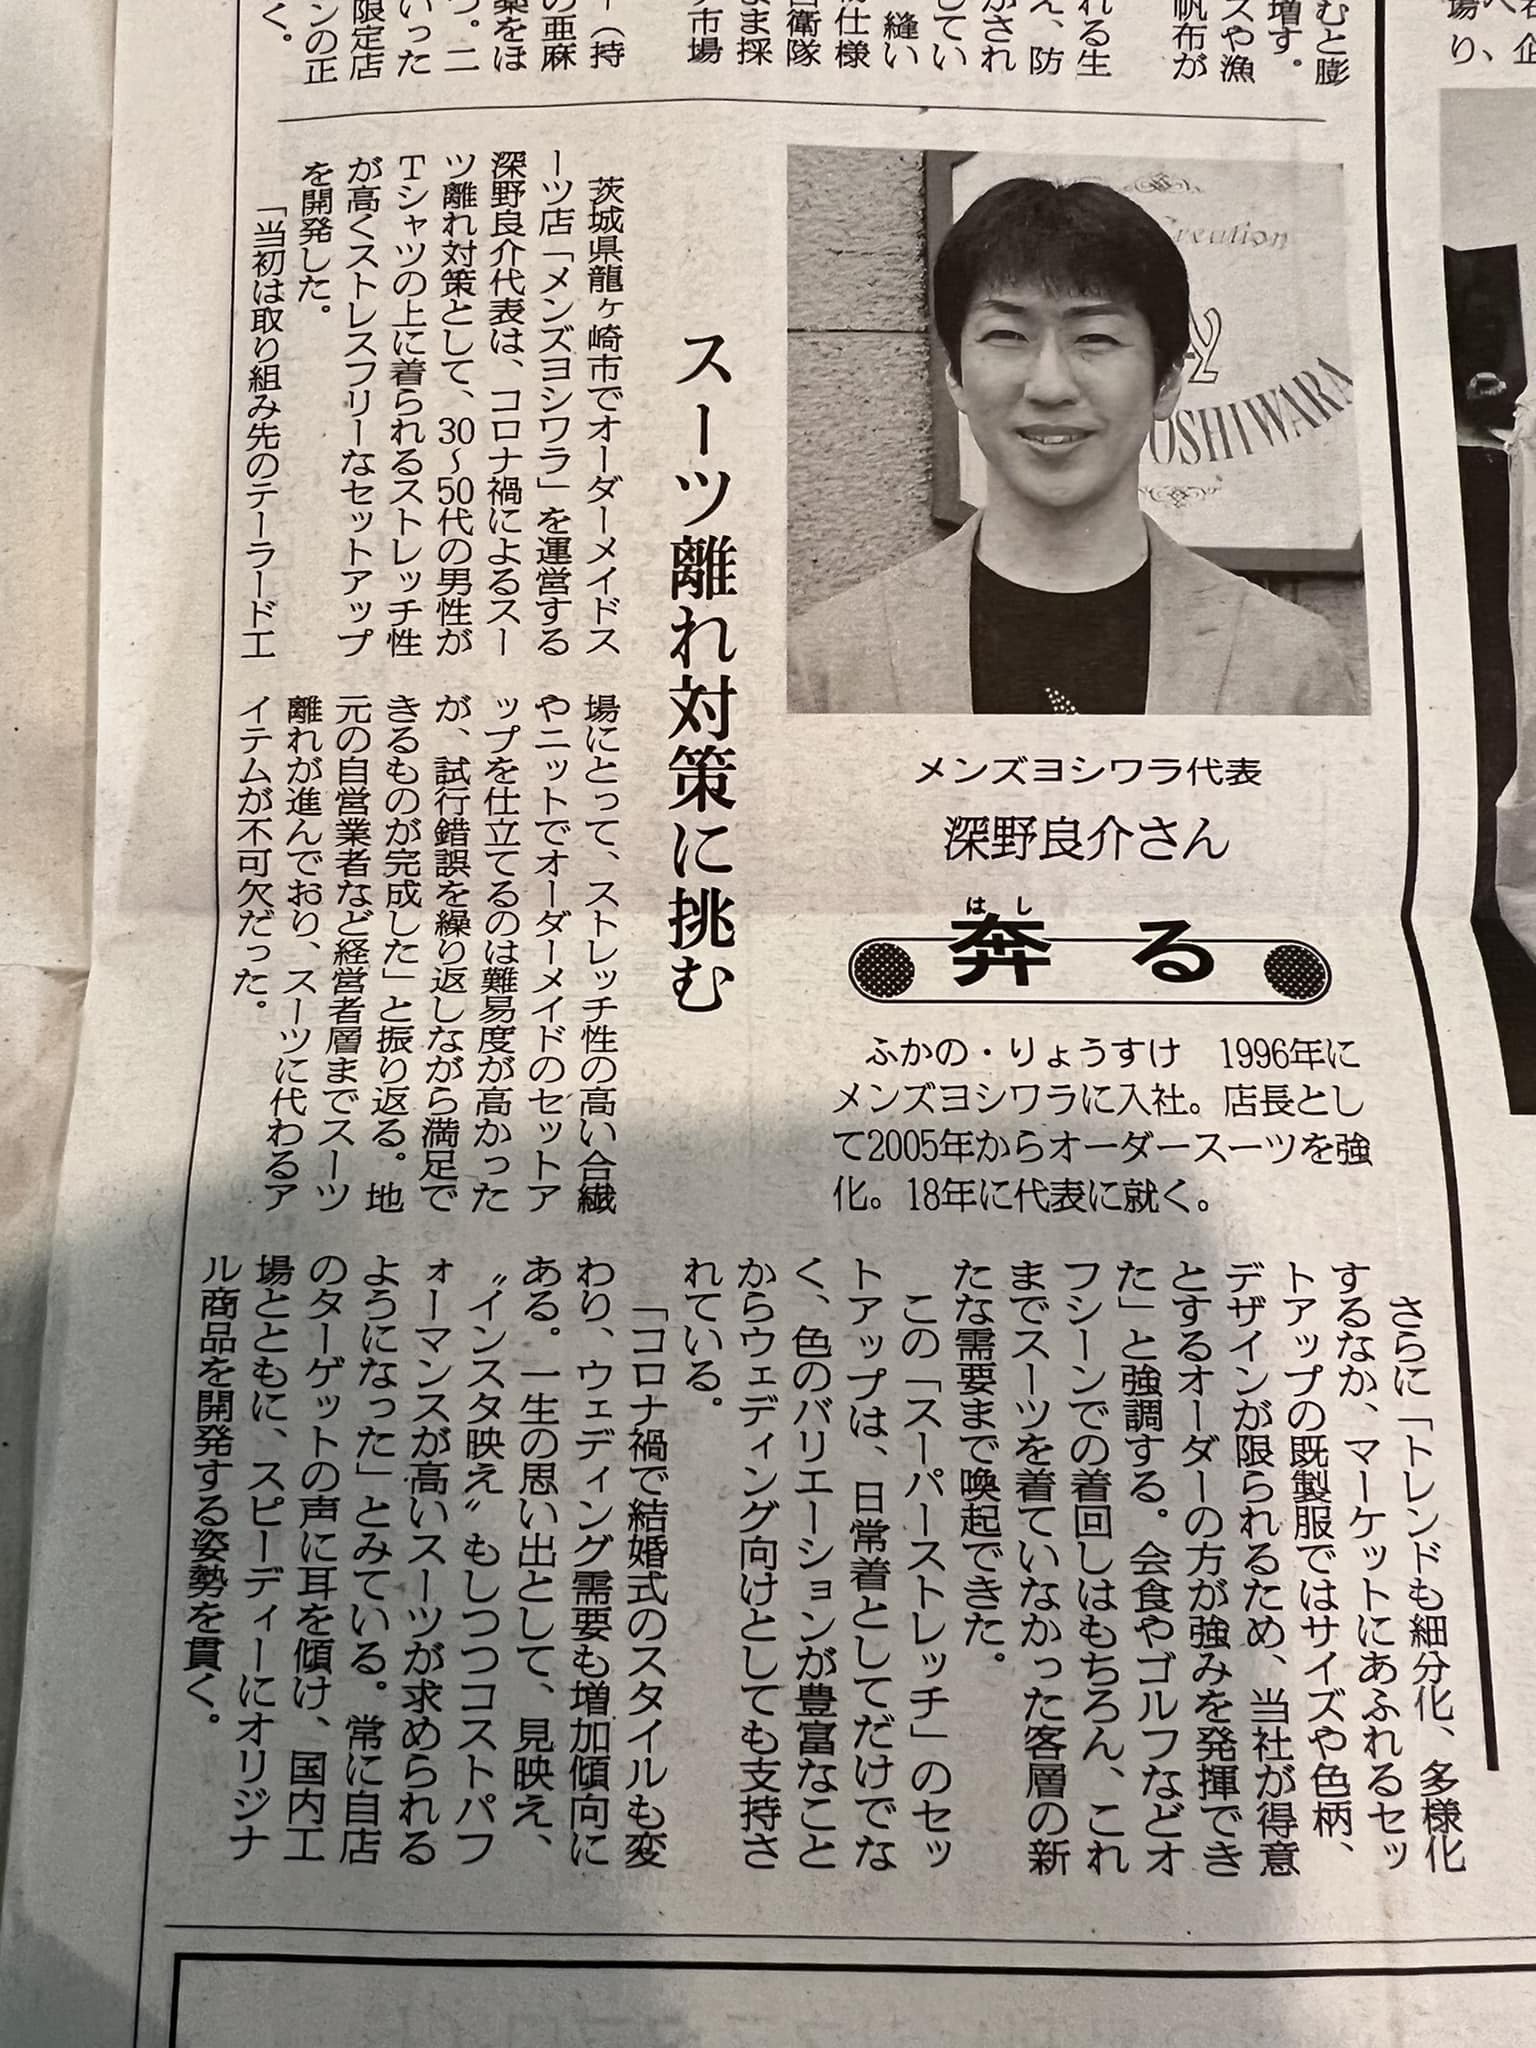 むと膨
増す。
スや漁
帆布が
れる生
え、防
がされ
してい
縫い
物仕様
衛隊
まま採
市場
ー（持
の亜麻
薬をほ
つ。二
いった
限定店
ンの正
く。
り、
Creation
YOSHIWARA
メンズヨシワラ代表
深野良介さん
はし
奔る
ふかの・りょうすけ　1996年に
メンズヨシワラに入社。店長とし
て2005年からオーダースーツを強
化。18年に代表に就く。
スーツ離れ対策に挑む
茨城県龍ヶ崎市でオーダーメイドス
ーツ店「メンズヨシワラ」を運営する
深野良介代表は、コロナ禍によるスー
ツ離れ対策として、30〜50代の男性が
Tシャツの上に着られるストレッチ性
が高くストレスフリーなセットアップ
を開発した。
「当初は取り組み先のテーラード工
場にとって、ストレッチ性の高い合繊
やニットでオーダーメイドのセットア
ップを仕立てるのは難易度が高かった
が、試行錯誤を繰り返しながら満足で
きるものが完成した」と振り返る。地
元の自営業者など経営者層までスーツ
離れが進んでおり、スーツに代わるア
イテムが不可欠だった。
さらに「トレンドも細分化、多様化
するなか、マーケットにあふれるセッ
トアップの既製服ではサイズや色柄、
デザインが限られるため、当社が得意
とするオーダーの方が強みを発揮でき
た」と強調する。会食やゴルフなどオ
フシーンでの着回しはもちろん、これ
までスーツを着ていなかった客層の新
たな需要まで喚起できた。
この「スーパーストレッチ」のセッ
トアップは、日常着としてだけでな
く、色のバリエーションが豊富なこと
からウェディング向けとしても支持さ
れている。
「コロナ禍で結婚式のスタイルも変
わり、ウェディング需要も増加傾向に
ある。一生の思い出として、見映え、
〝インスタ映え〟もしつつコストパフ
ォーマンスが高いスーツが求められる
ようになった」とみている。常に自店
のターゲットの声に耳を傾け、国内工
場とともに、スピーディーにオリジナ
ル商品を開発する姿勢を貫く。